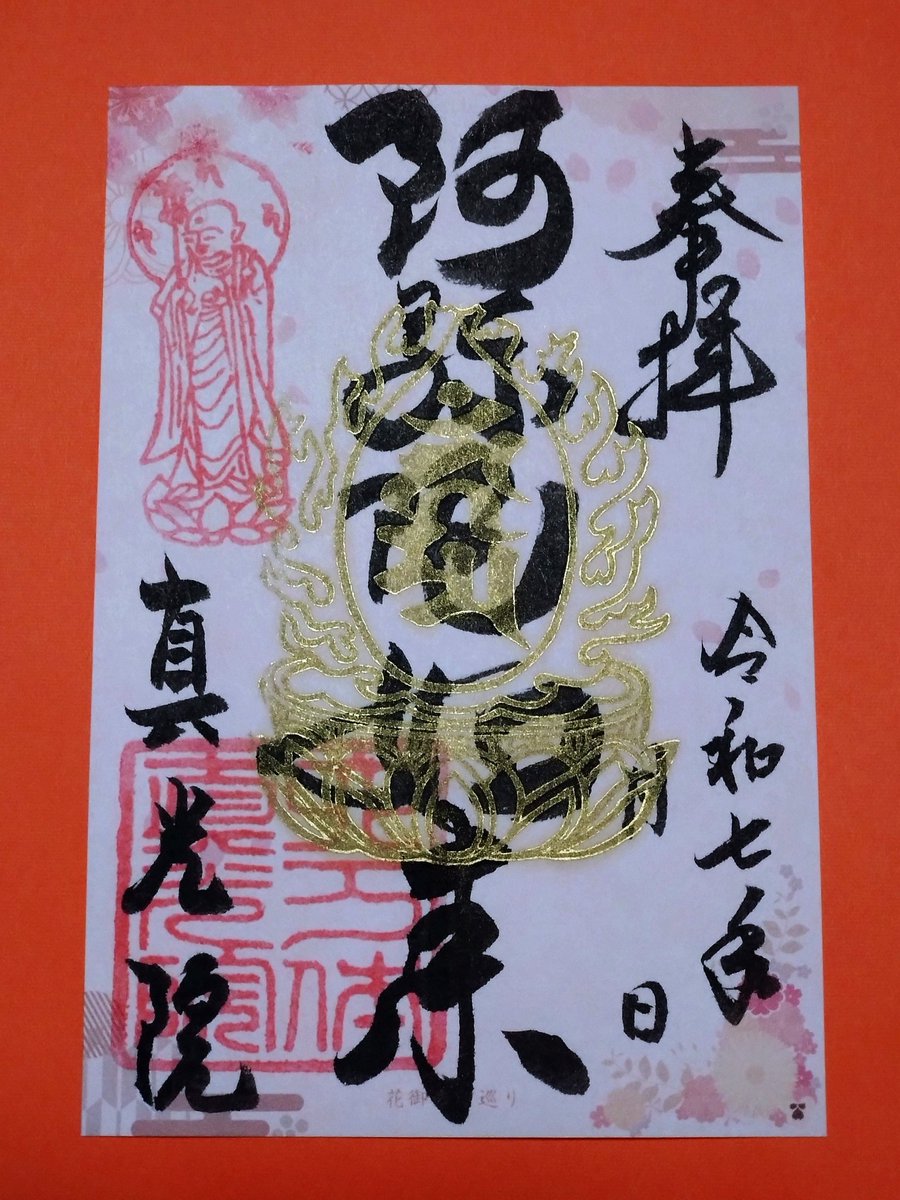 奉拝
令和七年
月
日
阿弥陀如来
真光院
花御 巡り